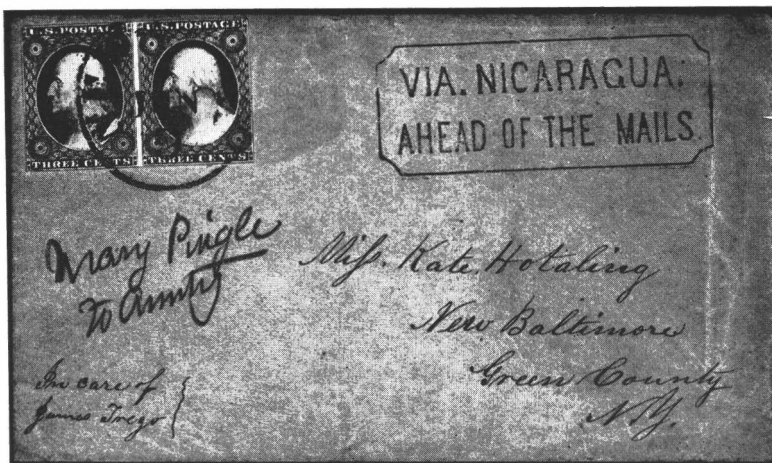 U.S. POSTAGE U.S. POSTAGE
THREE CENTS THREE CENTS
VIA. NICARAGUA.
AHEAD OF THE MAILS.
Mary Pingle
To Aunty
Miss. Kate Hotaling
New Baltimore
Green County
N.Y.
In care of
James Trego